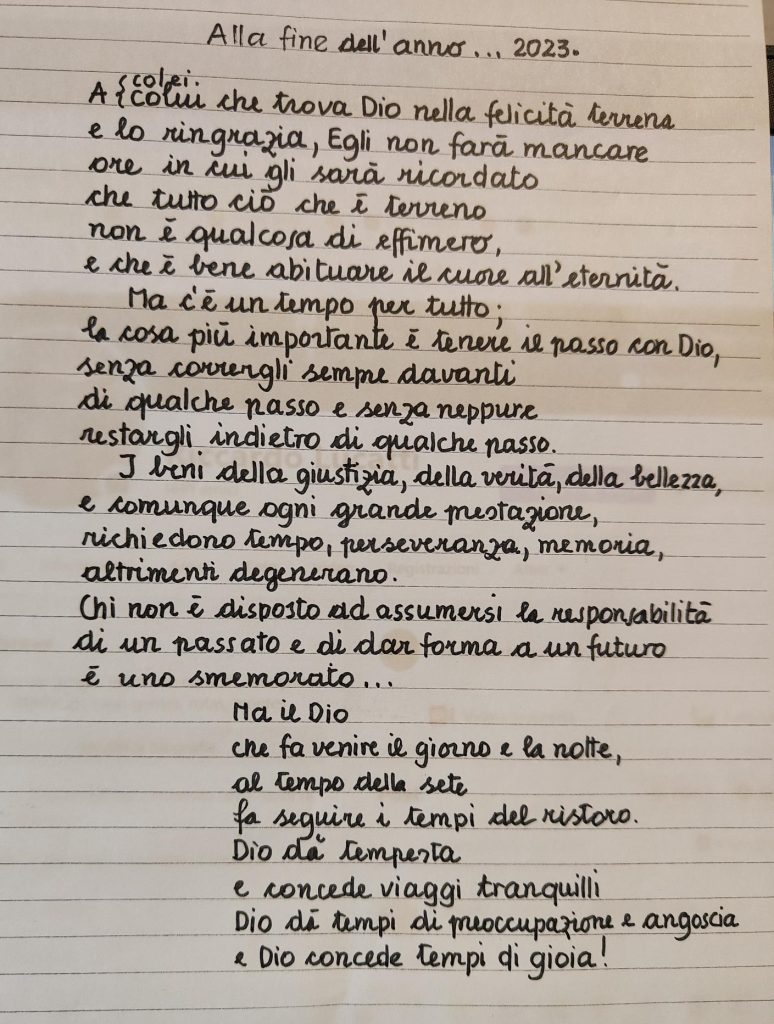 Alla fine dell'anno... 2023.
colei.
A { colui che trova Dio nella felicità terrena
e lo ringrazia, Egli non farà mancare
ore in cui gli sarà ricordato
che tutto ciò che è terreno
non è qualcosa di effimero,
e che è bene abituare il cuore all'eternità.
Ma c'è un tempo per tutto;
la cosa più importante è tenere il passo con Dio,
senza corrergli sempre davanti
di qualche passo e senza neppure
restargli indietro di qualche passo.
I beni della giustizia, della verità, della bellezza,
e comunque ogni grande prestazione,
richiedono tempo, perseveranza, memoria,
altrimenti degenerano.
Chi non è disposto ad assumersi la responsabilità
di un passato e di dar forma a un futuro
è uno smemorato...
Ma il Dio
che fa venire il giorno e la notte,
al tempo della sete
fa seguire i tempi del ristoro.
Dio dà tempesta
e concede viaggi tranquilli
Dio dà tempi di preoccupazione e angoscia
e Dio concede tempi di gioia!